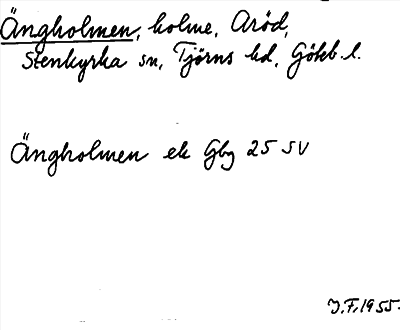 Ängholmen, holme, Aröd,
Stenkyrka sn, Tjörns hd, Göteb. l.
Ängholmen ek Gbg 25 SV
J.F. 1955.